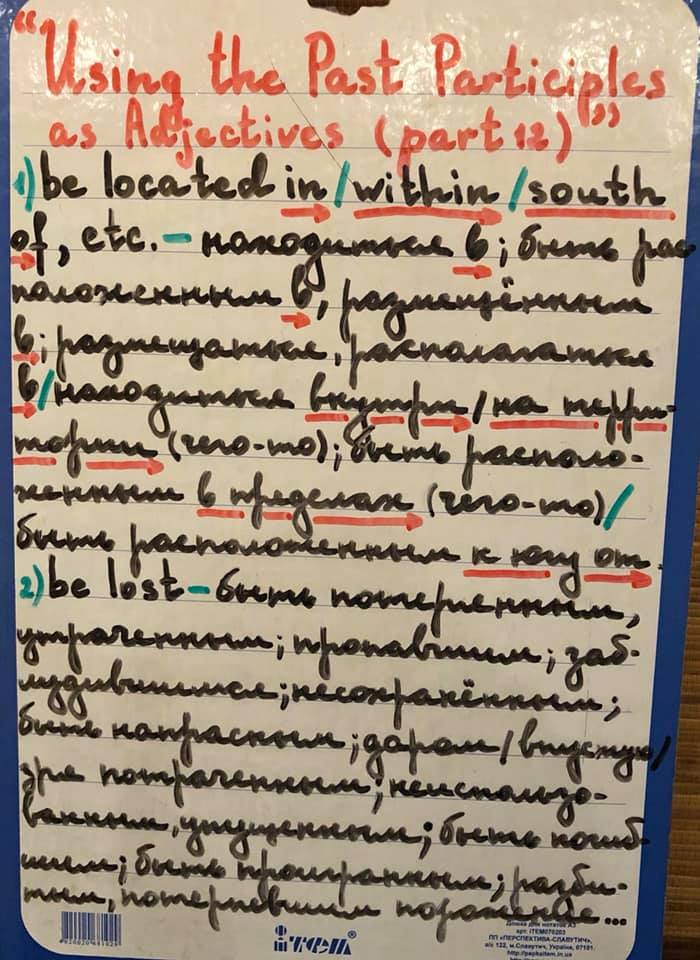 "Using the Past Participles
as Adjectives (part 12)"
1) be located in / within / south
of, etc. - находиться в; быть рас
положенным в, размещённым
в; размещаться, располагаться
в / находиться внутри / на терри-
тории (чего-то); быть располо-
женным в пределах (чего-то) /
быть расположенным к югу от.
2) be lost - быть потерянным,
утраченным; пропавшим; заб-
лудившимся; несохранённым;
быть напрасным; даром / впустую /
зря потраченным; неиспользо-
ванным, упущенным; быть погиб-
шим; быть проигранным; разби-
тым, потерпевшим поражение...
iтем®
Дошка для нотаток А3
арт. iTEM070203
ПП «ПЕРСПЕКТИВА-СЛАВУТИЧ»,
а/с 122, м.Славутич, Україна, 07101.
http://papkaitem.in.ua